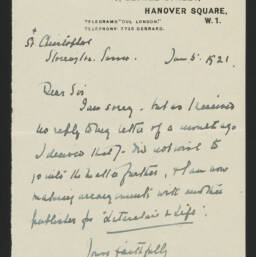 HANOVER SQUARE,
W.1.
TELEGRAMS "OUL LONDON."
TELEPHONE 7729 GERRARD.
St Christopher
Storrington, Sussex
Jan 5. 1921
Dear Sir
I am sorry - but as I received
no reply to my letter of a month ago
I deduced that you did not wish to
go into the matter further, & I am now
making arrangements with another
publisher for
Yours faithfully